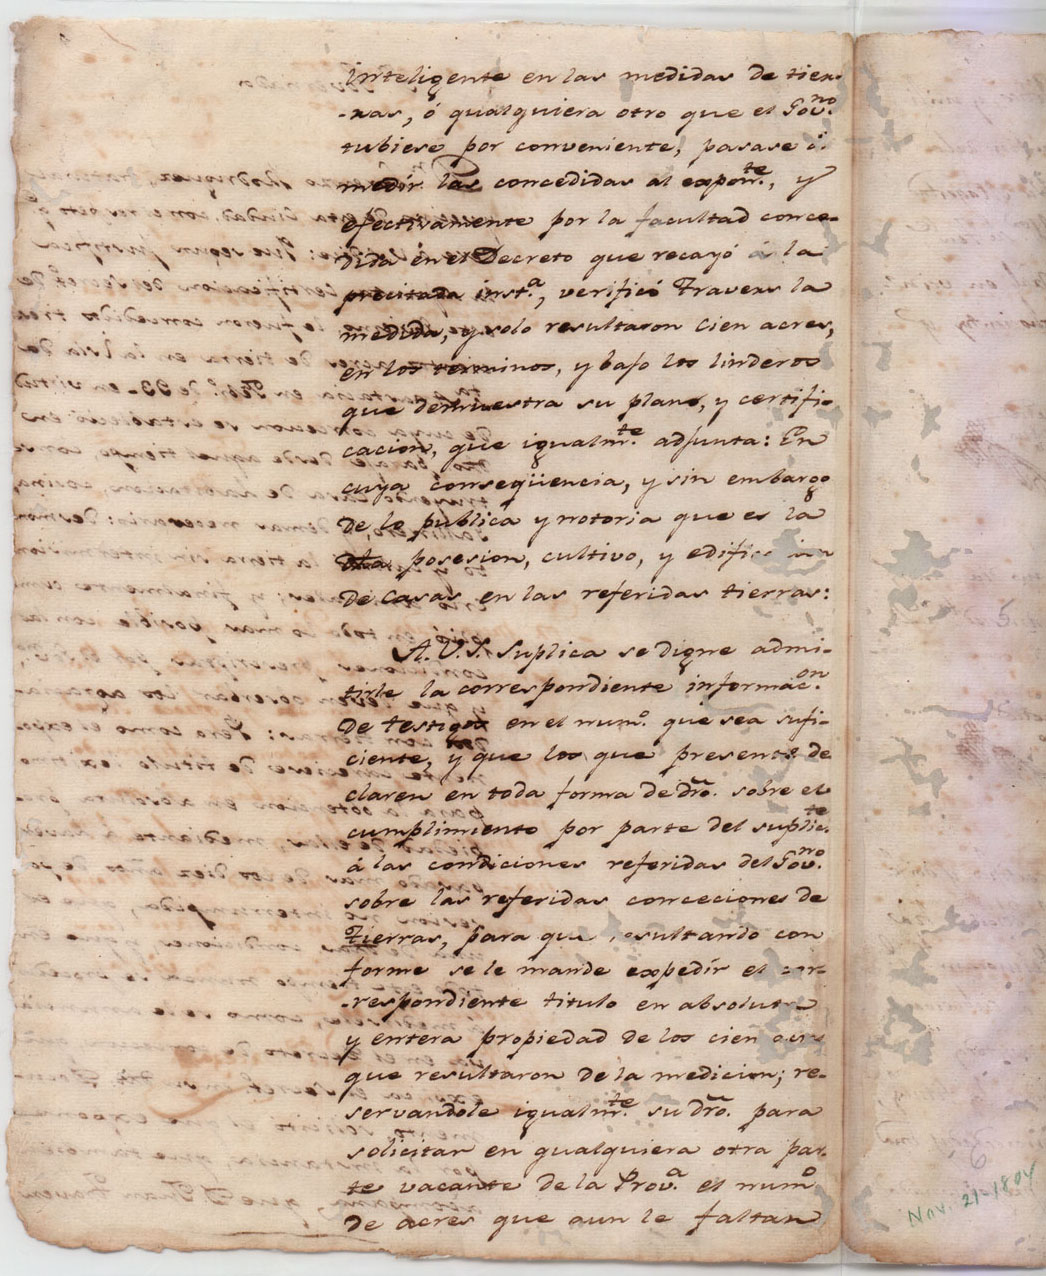 inteligente en las medidas de tier-
-ras, ó qualquiera otro que el Gov.no
tubiese por conveniente, pasase á
medir las concedidas al expon.te, y
efectivamente por la facultad conce-
dida en el Decreto que recayó á la
precitada inst.a, verificó Travers la
medida, y solo resultaron cien acres,
en los terminos, y bajo los linderos
que demuestra su plano, y certifi-
cacion, que igualm.te adjunta: En
cuya conseqüencia, y sin embargo
de lo publica y notoria que es la
posesion, cultivo, y edificacion
de casas en las referidas tierras:
A.V.S. Suplica se digne admi-
tirle la correspondiente informac.on
de testigos en el num.o que sea sufi-
ciente, y que los que presente de
claren en toda forma de dro. sobre el
cumplimiento por parte del suplic.te
á las condiciones referidas del Gov.no
sobre las referidas conceciones de
Tierras, para que resultando con
forme se le mande expedir el cor-
-respondiente titulo en absoluta
y entera propiedad de los cien acres
que resultaron de la medicion; re-
servandole igualm.te su dro. para
solicitar en qualquiera otra par-
te vacante de la Prov.a el num.o
de acres que aun le faltan
Nov. 21-1804